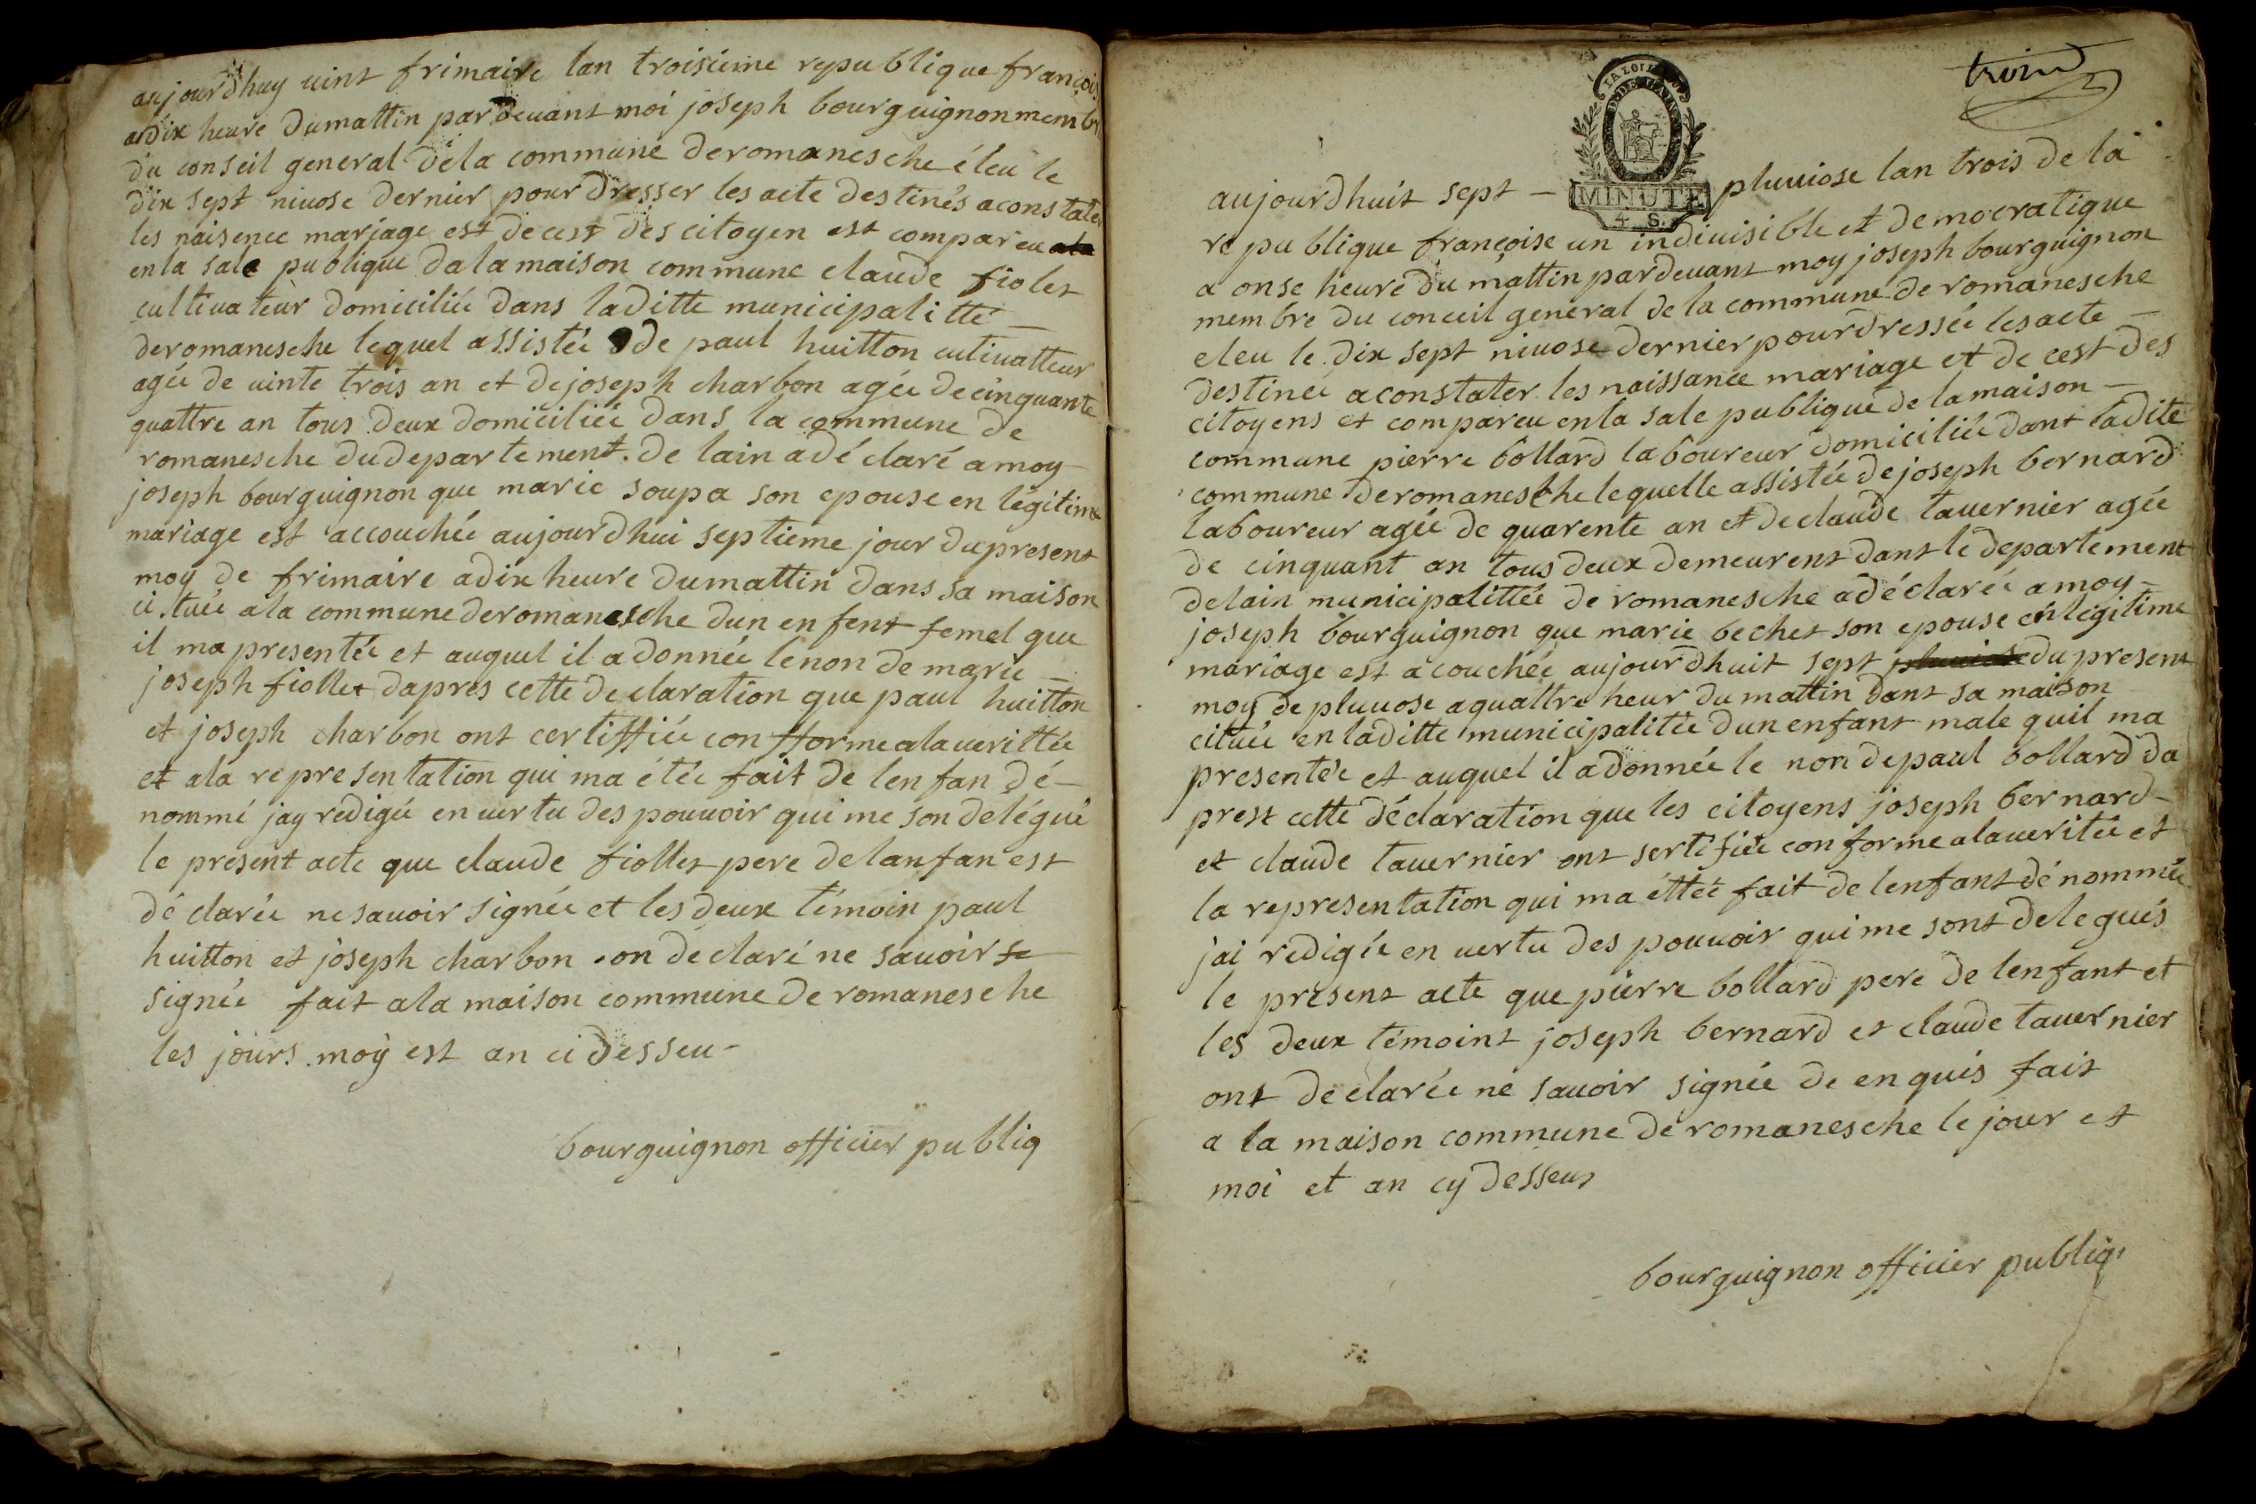 aujourdhuy uint frimaire lan troisieme republique françois
adix heure dumattin pardeuant moi joseph bourguignon membr
du conseil general dela commune deromanesche éleu le
dix sept niuose dernier pour dresser les acte destinés aconstater
les naisence marjage est decest des citoyen est compareu
enla sale publique dala maison commune claude fiolet
cultiuateur domiciliée dans laditte municipalitté
deromanesche lequel assistée de paul huitton cutiuatteur
agée de uinte trois an et dejoseph charbon agée decinquante
quattre an tous deux domiciliée dans la commune de
romanesche dudepartement. de lain adéclaré amoy
joseph bourguignon que marie soupa son epouse en légitime
mariage est accouchée aujourdhui septieme jour dupresent
moy de frimaire adix heure dumattin dans sa maison
cituée ala commune deromanesche dun enfent femel que
il ma presentée et auquel il adonnée lenon de marie
joseph fiollet dapres cette declaration que paul huitton
et joseph charbon ont certiffiée confforme alauerittée
et ala representation qui ma étée fait de lenfan dé-
nommé jay redigée en uertu des pouuoir qui me son delégué
le present acte que claude fiollet pere delanfan est
déclarée nesauoir signée et les deux témoin paul
huitton et joseph charbon on declaré ne sauoir se
signée fait ala maison commune de romanesche
les jours moy est an ci desseu-
bourguignon officier publiq
trois
LA LOI
MINUTE
4. S.
aujourdhuit sept - pluuiose lan trois de la
republique françoise un indiuisible et democratique
a onse heure du mattin pardeuant moy joseph bourguignon
membre du conceil general de la commune de romanesche
eleu le dix sept niuose dernier pour dressée les acte
destinée aconstater les naissance mariage et de cest des
citoyens et compareu enla sale publique de la maison
commune pierre bollard laboureur domiciliée dant ladite
commune deromanesche lequelle assistée de joseph bernard
laboureur agée de quarente an et declaude tauernier agée
de cinquant an tous deux demeurent dant le departement
delain municipalittée de romanesche adéclarée amoy
joseph bourguignon que marie bechet son epouse enlegitime
mariage est acouchée aujourdhuit sept pluuiose du present
moy de pluuose aquattre heur du mattin dant sa maison
cituée en laditte municipalitée dun enfant male quil ma
presentée et auquel il adonnée le non depaul bollard da
prest cette déclaration que les citoyens joseph bernard
et claude tauernier ont sertifiée conforme alaueritée et
la representation qui ma éttée fait de lenfant dénommée
jai redigée en uertu des pouuoir qui me sont delegués
le present acte que pierre bollard pere de lenfant et
les deux témoint joseph bernard et claude tauernier
ont declarée ne sauoir signée de enquis fait
a la maison commune de romanesche le jour et
moi et an cy desseus
bourguignon officier publiq